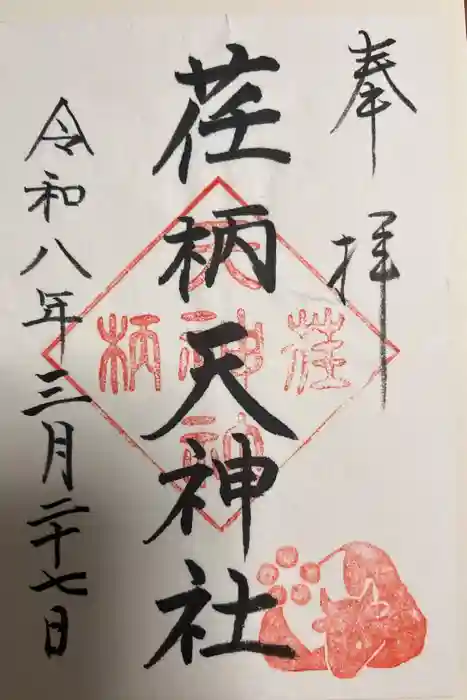 奉拝
荏柄天神社
令和八年三月二十七日
荏
天神社
柄